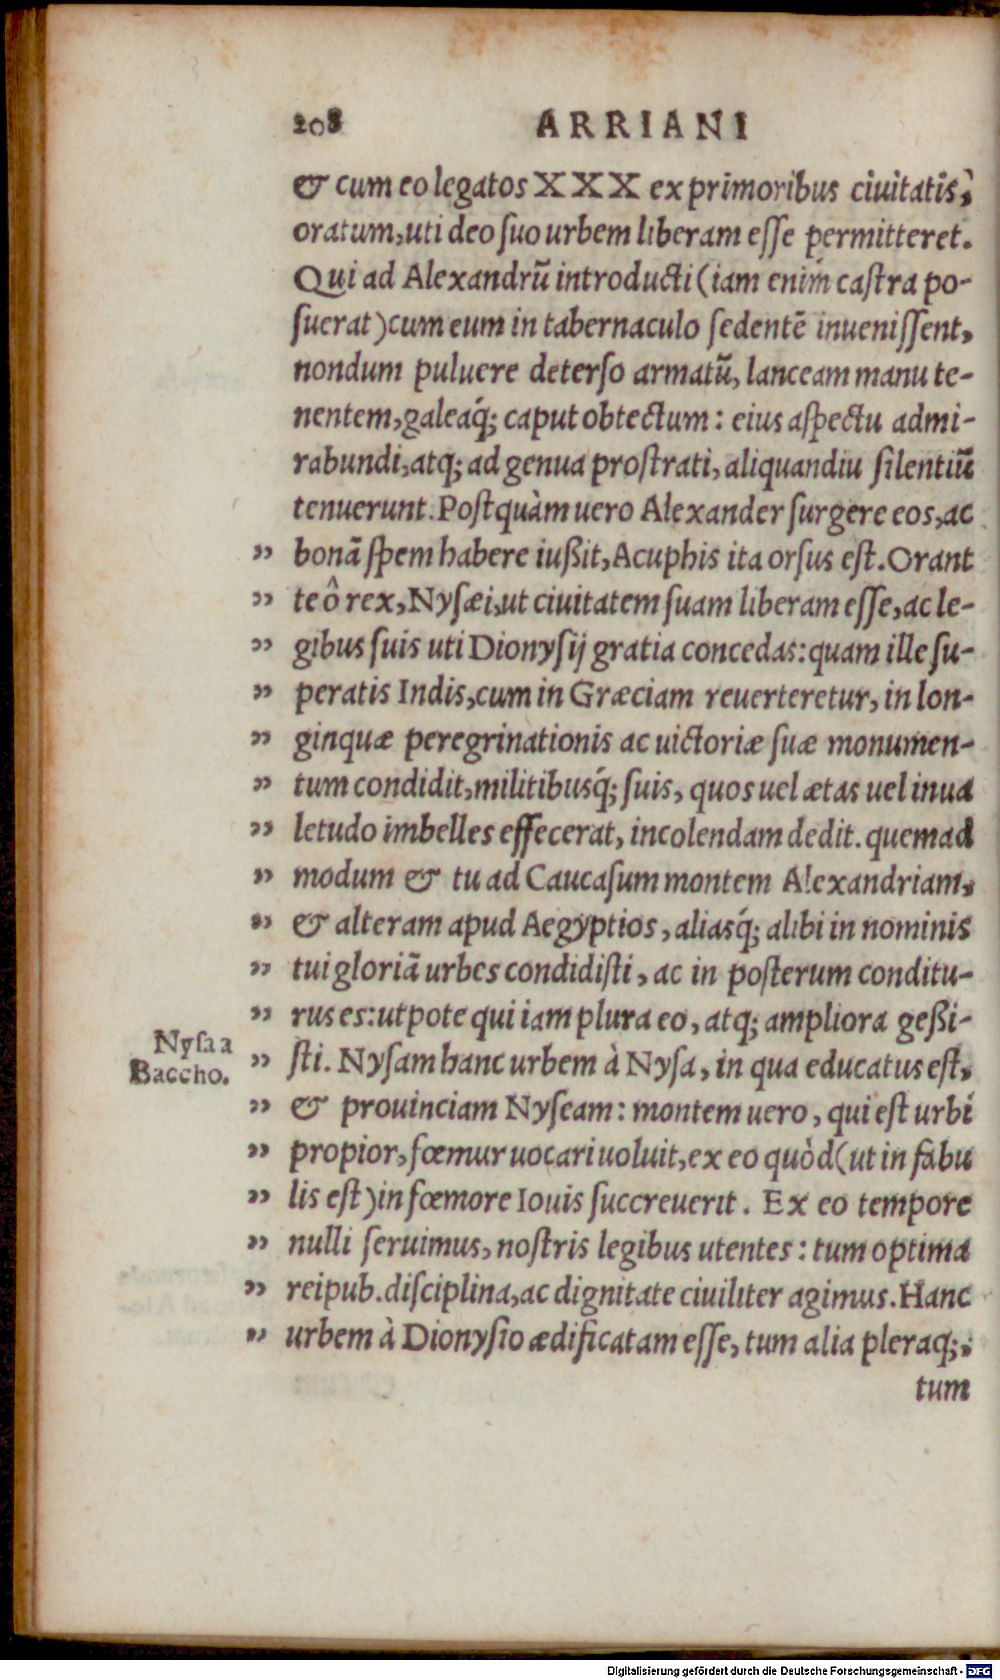 208 ARRIANI
& cum eo legatos XXX ex primoribus ciuitatis,
oratum, uti deo suo urbem liberam esse permitteret.
Qui ad Alexandrū introducti (iam enim castra po-
suerat) cum eum in tabernaculo sedentē inuenissent,
nondum puluere deterso armatū, lanceam manu te-
nentem, galeaq́; caput obtectum: eius aspectu admi-
rabundi, atq; ad genua prostrati, aliquandiu silentiū
tenuerunt. Postquàm uero Alexander surgere eos, ac
” bonā spem habere iußit, Acuphis ita orsus est. Orant
” te ô rex, Nysæi, ut ciuitatem suam liberam esse, ac le-
” gibus suis uti Dionysij gratia concedas: quam ille su-
” peratis Indis, cum in Græciam reuerteretur, in lon-
” ginquæ peregrinationis ac uictoriæ suæ monumen-
” tum condidit, militibusq́; suis, quos uel ætas uel inua
” letudo imbelles effecerat, incolendam dedit. quemad
” modum & tu ad Caucasum montem Alexandriam,
” & alteram apud Aegyptios, aliasq́; alibi in nominis
” tui gloriā urbes condidisti, ac in posterum conditu-
” rus es: utpote qui iam plura eo, atq; ampliora geßi-
Nysa a
Baccho.
” sti. Nysam hanc urbem à Nysa, in qua educatus est,
” & prouinciam Nyseam: montem uero, qui est urbi
” propior, fœmur uocari uoluit, ex eo quòd (ut in fabu
” lis est) in fœmore Iouis succreuerit. Ex eo tempore
” nulli seruimus, nostris legibus utentes: tum optima
” reipub. disciplina, ac dignitate ciuiliter agimus. Hanc
” urbem à Dionysio ædificatam esse, tum alia pleraq;,
tum
Digitalisierung gefördert durch die Deutsche Forschungsgemeinschaft - DFG